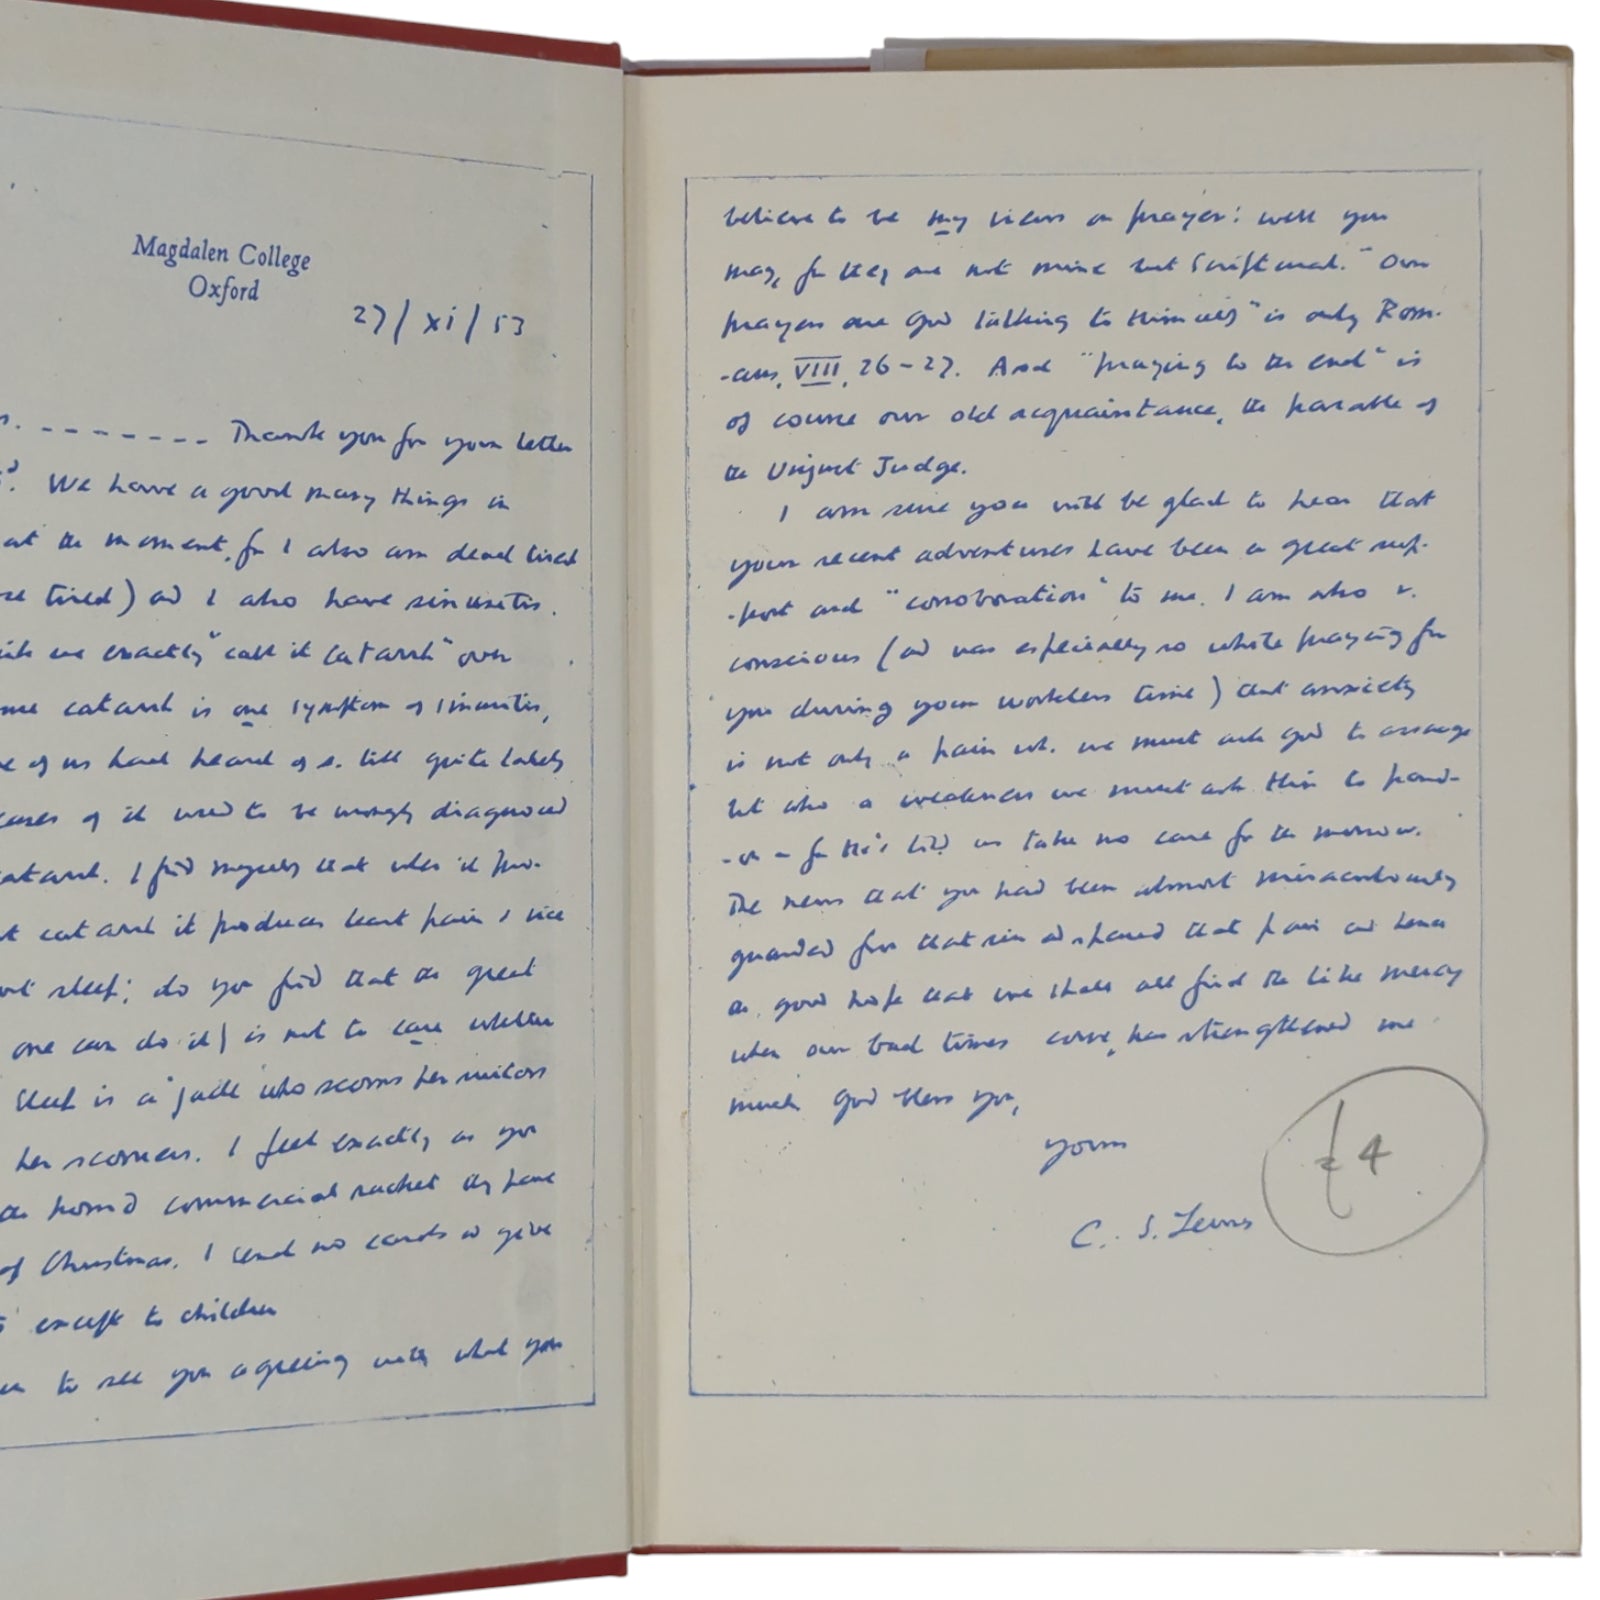 Magdalen College
Oxford
27/xi/53
s. -------- Thank you for your letter
We have a good many things in
at the moment, for I also am dead tired
tired) and I also have sinusitis.
we exactly "call it catarrh" over
catarrh is one symptom of sinusitis,
of us had heard of s. till quite lately
cases of it used to be wrongly diagnosed
catarrh. I find myself that when it pro-
catarrh it produces least pain & vice
sleep; do you find that the great
one can do it) is not to care whether
Sleep is a "jade who scorns her suitors
her scorners. I feel exactly as you
the horrid commercial racket they have
of Christmas. I send no cards or give
except to children
to see you agreeing with what you
believe to be my views on prayer: well you
may, for they are not mine but Scriptural. "Our
prayers are God talking to Himself" is only Rom-
-ans, VIII, 26-27. And "praying to the end" is
of course our old acquaintance, the parable of
the Unjust Judge.
I am sure you will be glad to hear that
your recent adventures have been a great sup-
-port and "corroboration" to me. I am also v.
conscious (and was especially so while praying for
you during your workless time) that anxiety
is not only a pain wh. we must ask God to assuage
but also a weakness we must ask Him to pard-
-on - for He's told us take no care for the morrow.
The news that you had been almost miraculously
guarded from that sin and spared that pain and hence
the good hope that we shall all find the like mercy
when our bad times come, has strengthened me
much. God bless you,
yours
C. S. Lewis
£4